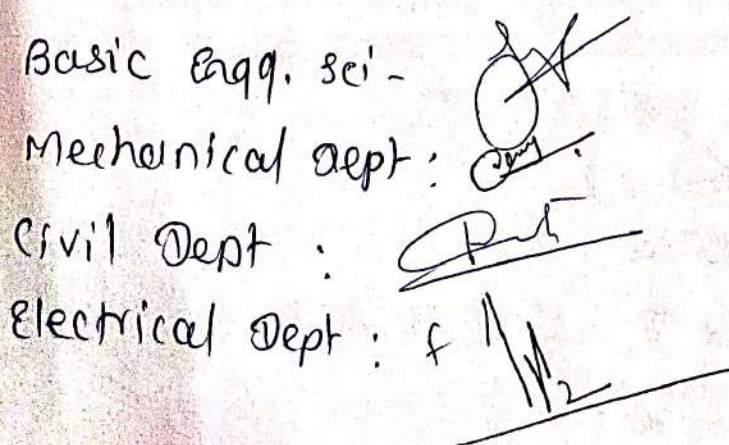 Basic Engg. Sci -
Mechanical Dept :
Civil Dept :
Electrical Dept : f